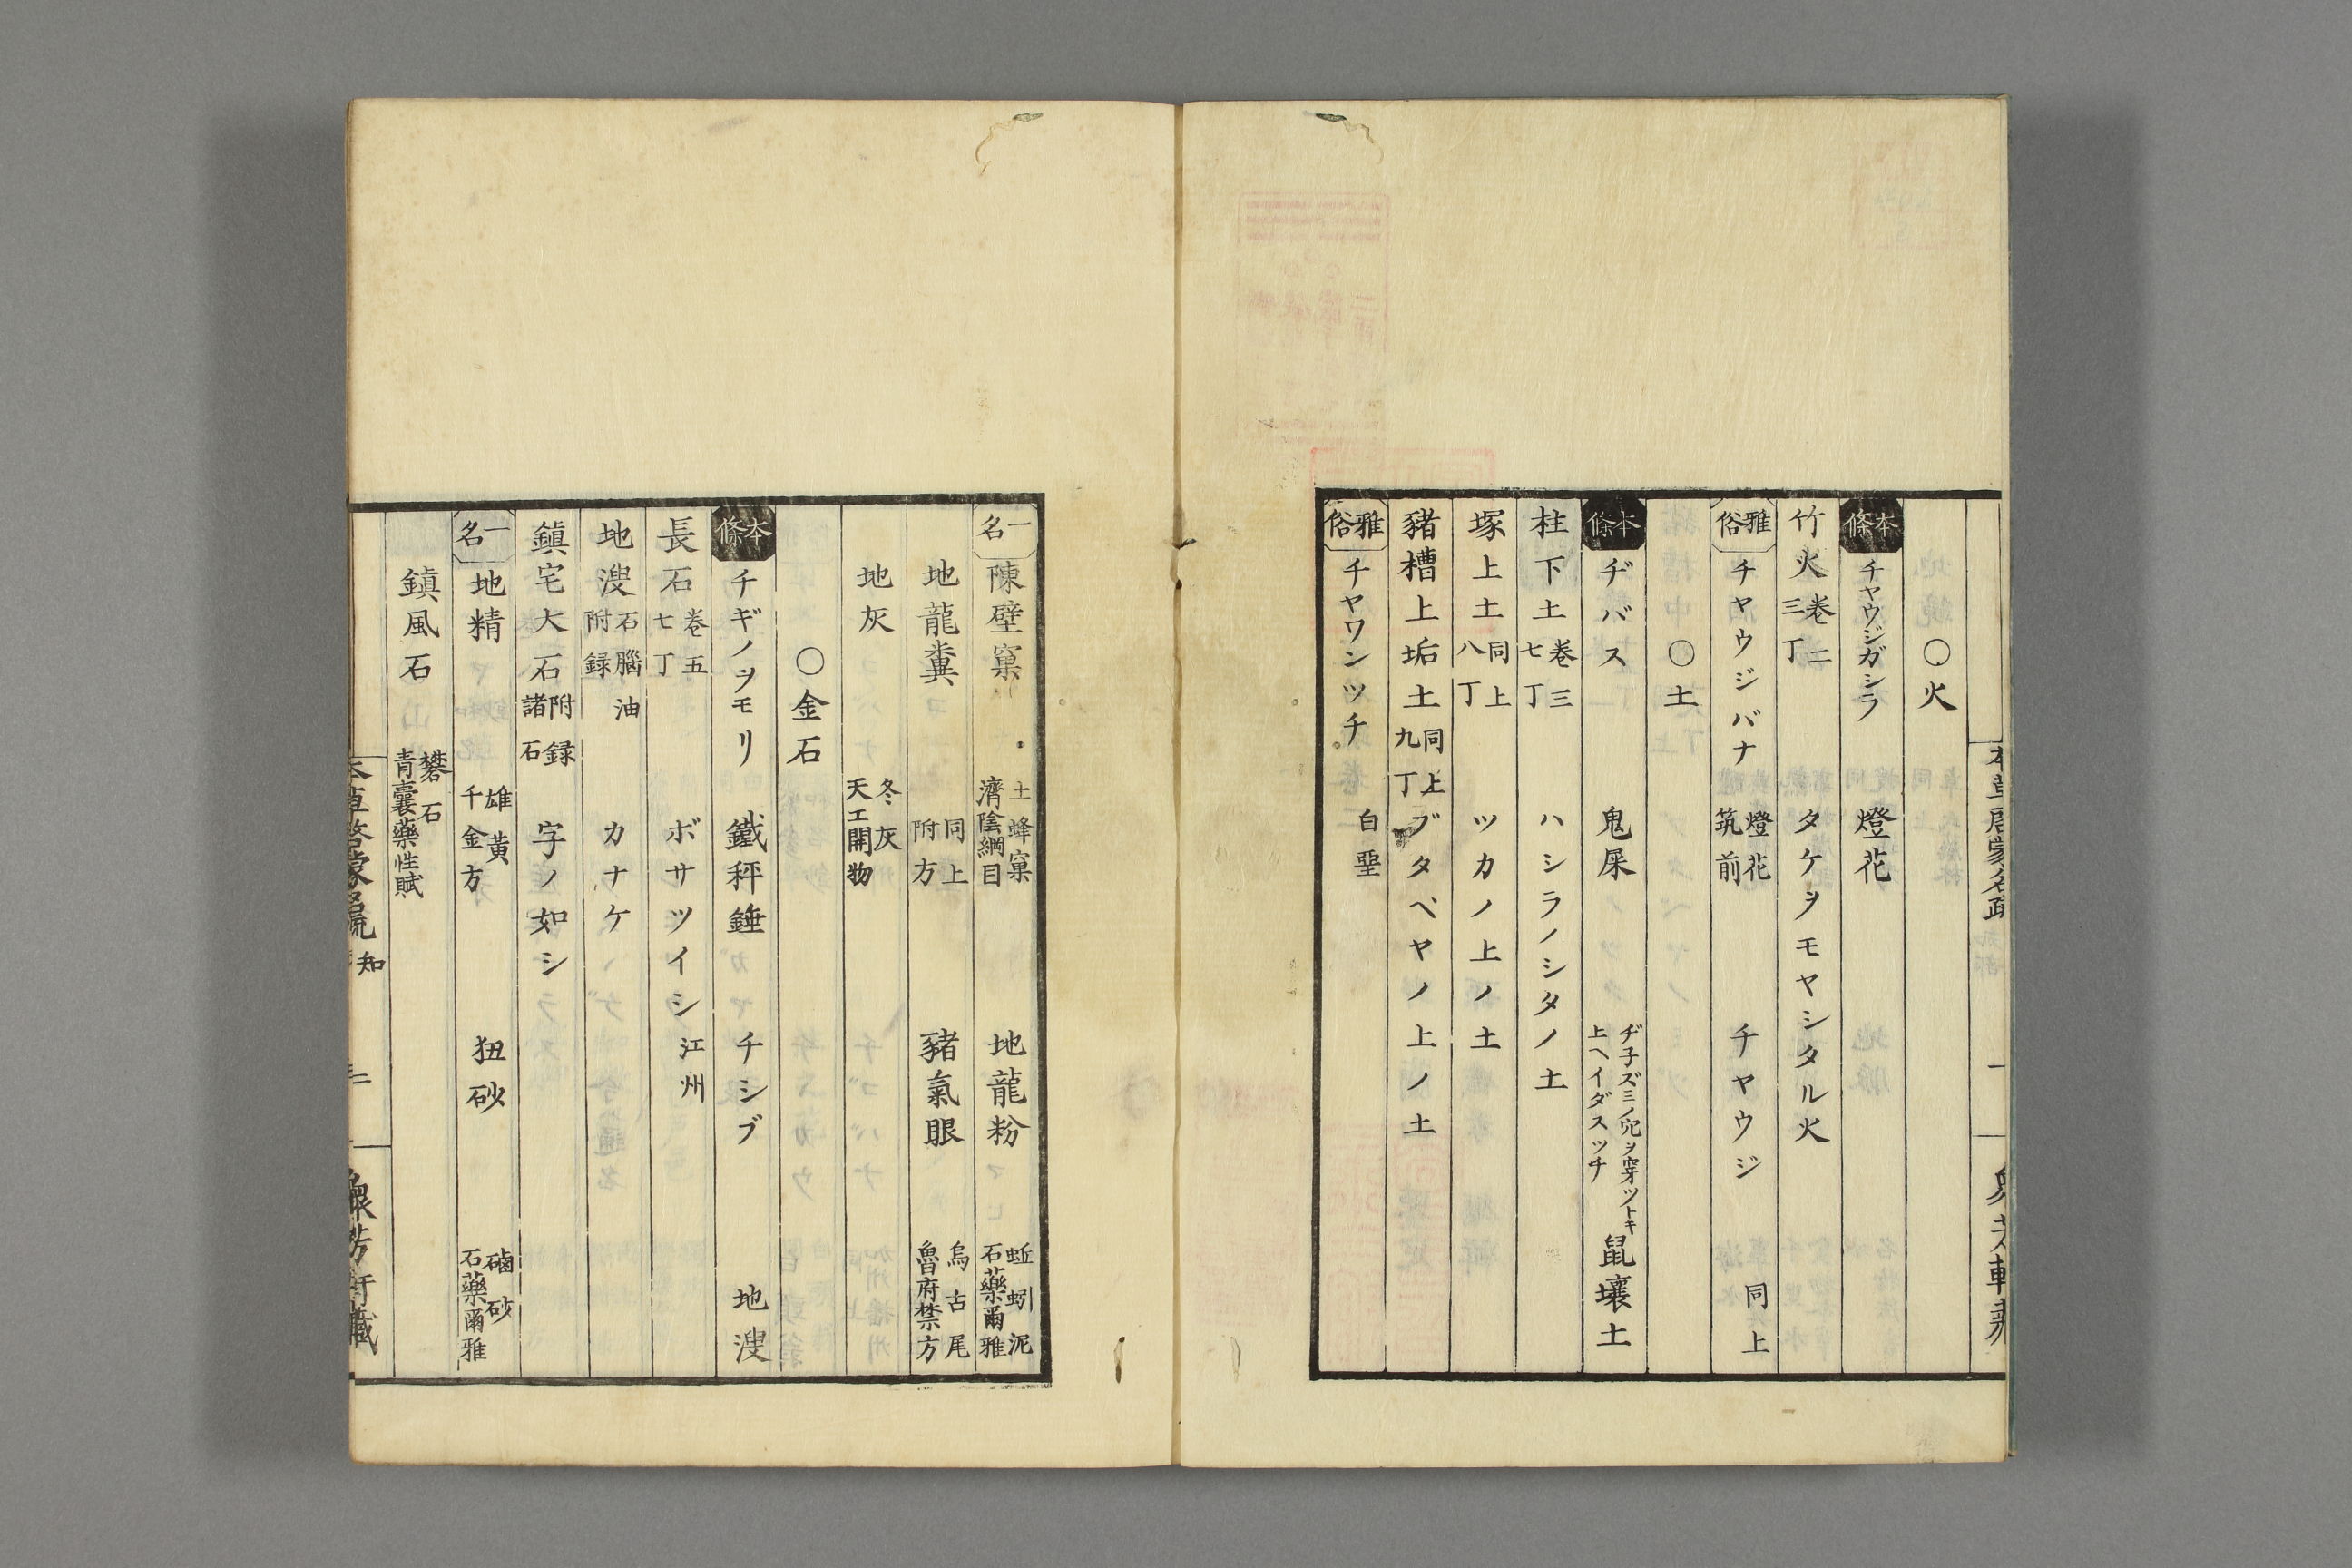 本草啓蒙名疏
一
〇火
本條 チヤウジガシラ 燈花
竹火 卷二 三丁 タケヲモヤシタル火
雅俗 チヤウジバナ 燈花 筑前 チヤウジ 同上
〇土
本條 ヂバス 鬼屎 ヂ子ズミノ穴ヲ穿ツトキ 上ヘイダスツチ 鼠壤土
柱下土 卷三 七丁 ハシラノシタノ土
塚上土 同上 八丁 ツカノ上ノ土
豬槽上垢土 同上 九丁 ブタベヤノ上ノ土
雅俗 チヤワンツチ 白堊
一名 陳壁窠 土蜂窠 濟陰綱目 地龍粉 蚯蚓泥 石藥爾雅
地龍糞 同上 附方 豬氣眼 烏古尾 魯府禁方
地灰 冬灰 天工開物
〇金石
本條 チギノヲモリ 鐵秤錘 チシブ 地溲
長石 卷五 七丁 ボサツイシ 江州
地溲 石腦油 附録 カナケ
鎮宅大石 附録 諸石 字ノ如シ
一名 地精 雄黃 千金方 狃砂 磠砂 石藥爾雅
鎮風石 礬石 青囊藥性賦
知
二